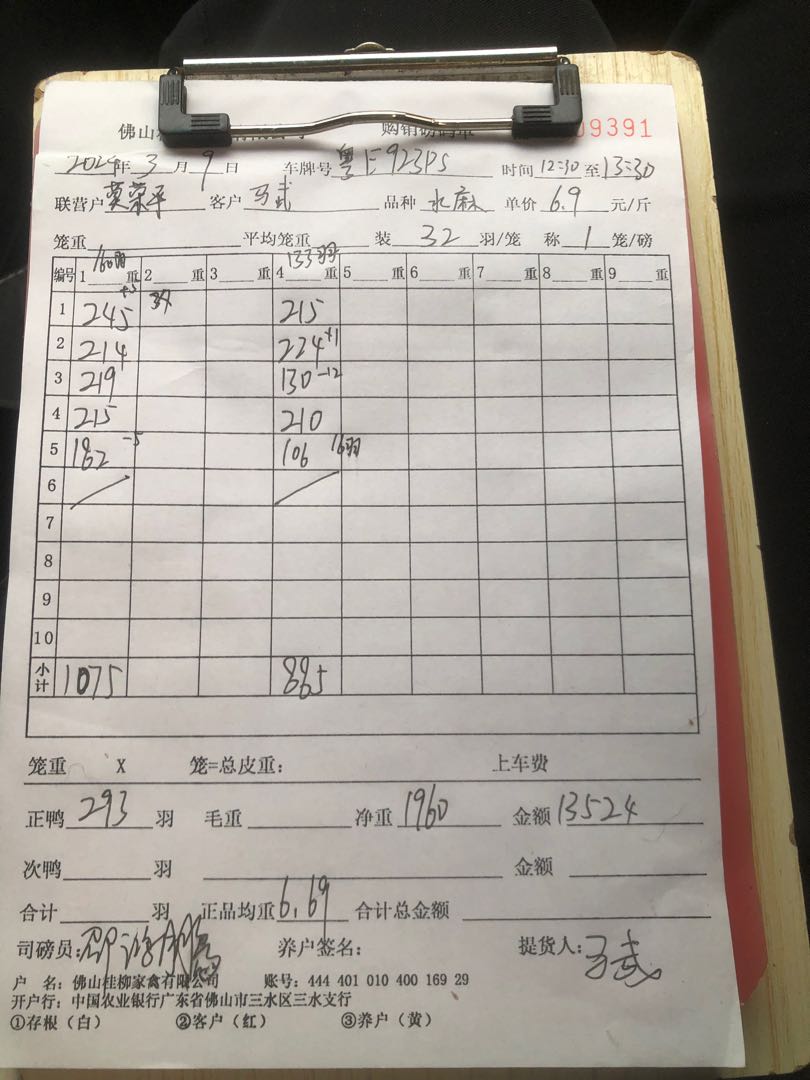 佛山 购销磅码单 09391
2024年 3 月 9 日 车牌号 粤E923PS 时间 12:30 至 13:30
联营户 莫荣平 客户 马武 品种 水麻 单价 6.9 元/斤
笼重 平均笼重 装 32 羽/笼 称 1 笼/磅
160羽 133羽
编号 1 重 2 重 3 重 4 重 5 重 6 重 7 重 8 重 9 重
1 245 +5 37 215
2 214 224 +1
3 219 130 -12
4 215 210
5 182 -5 106 16羽
6
7
8
9
10
小计 1075 885
笼重 X 笼=总皮重: 上车费
正鸭 293 羽 毛重 净重 1960 金额 13524
次鸭 羽 金额
合计 羽 正品均重 6.69 合计总金额
司磅员: 养户签名: 提货人: 马武
户 名: 佛山桂柳家禽有限公司 账号: 444 401 010 400 169 29
开户行: 中国农业银行广东省佛山市三水区三水支行
①存根(白) ②客户(红) ③养户(黄)